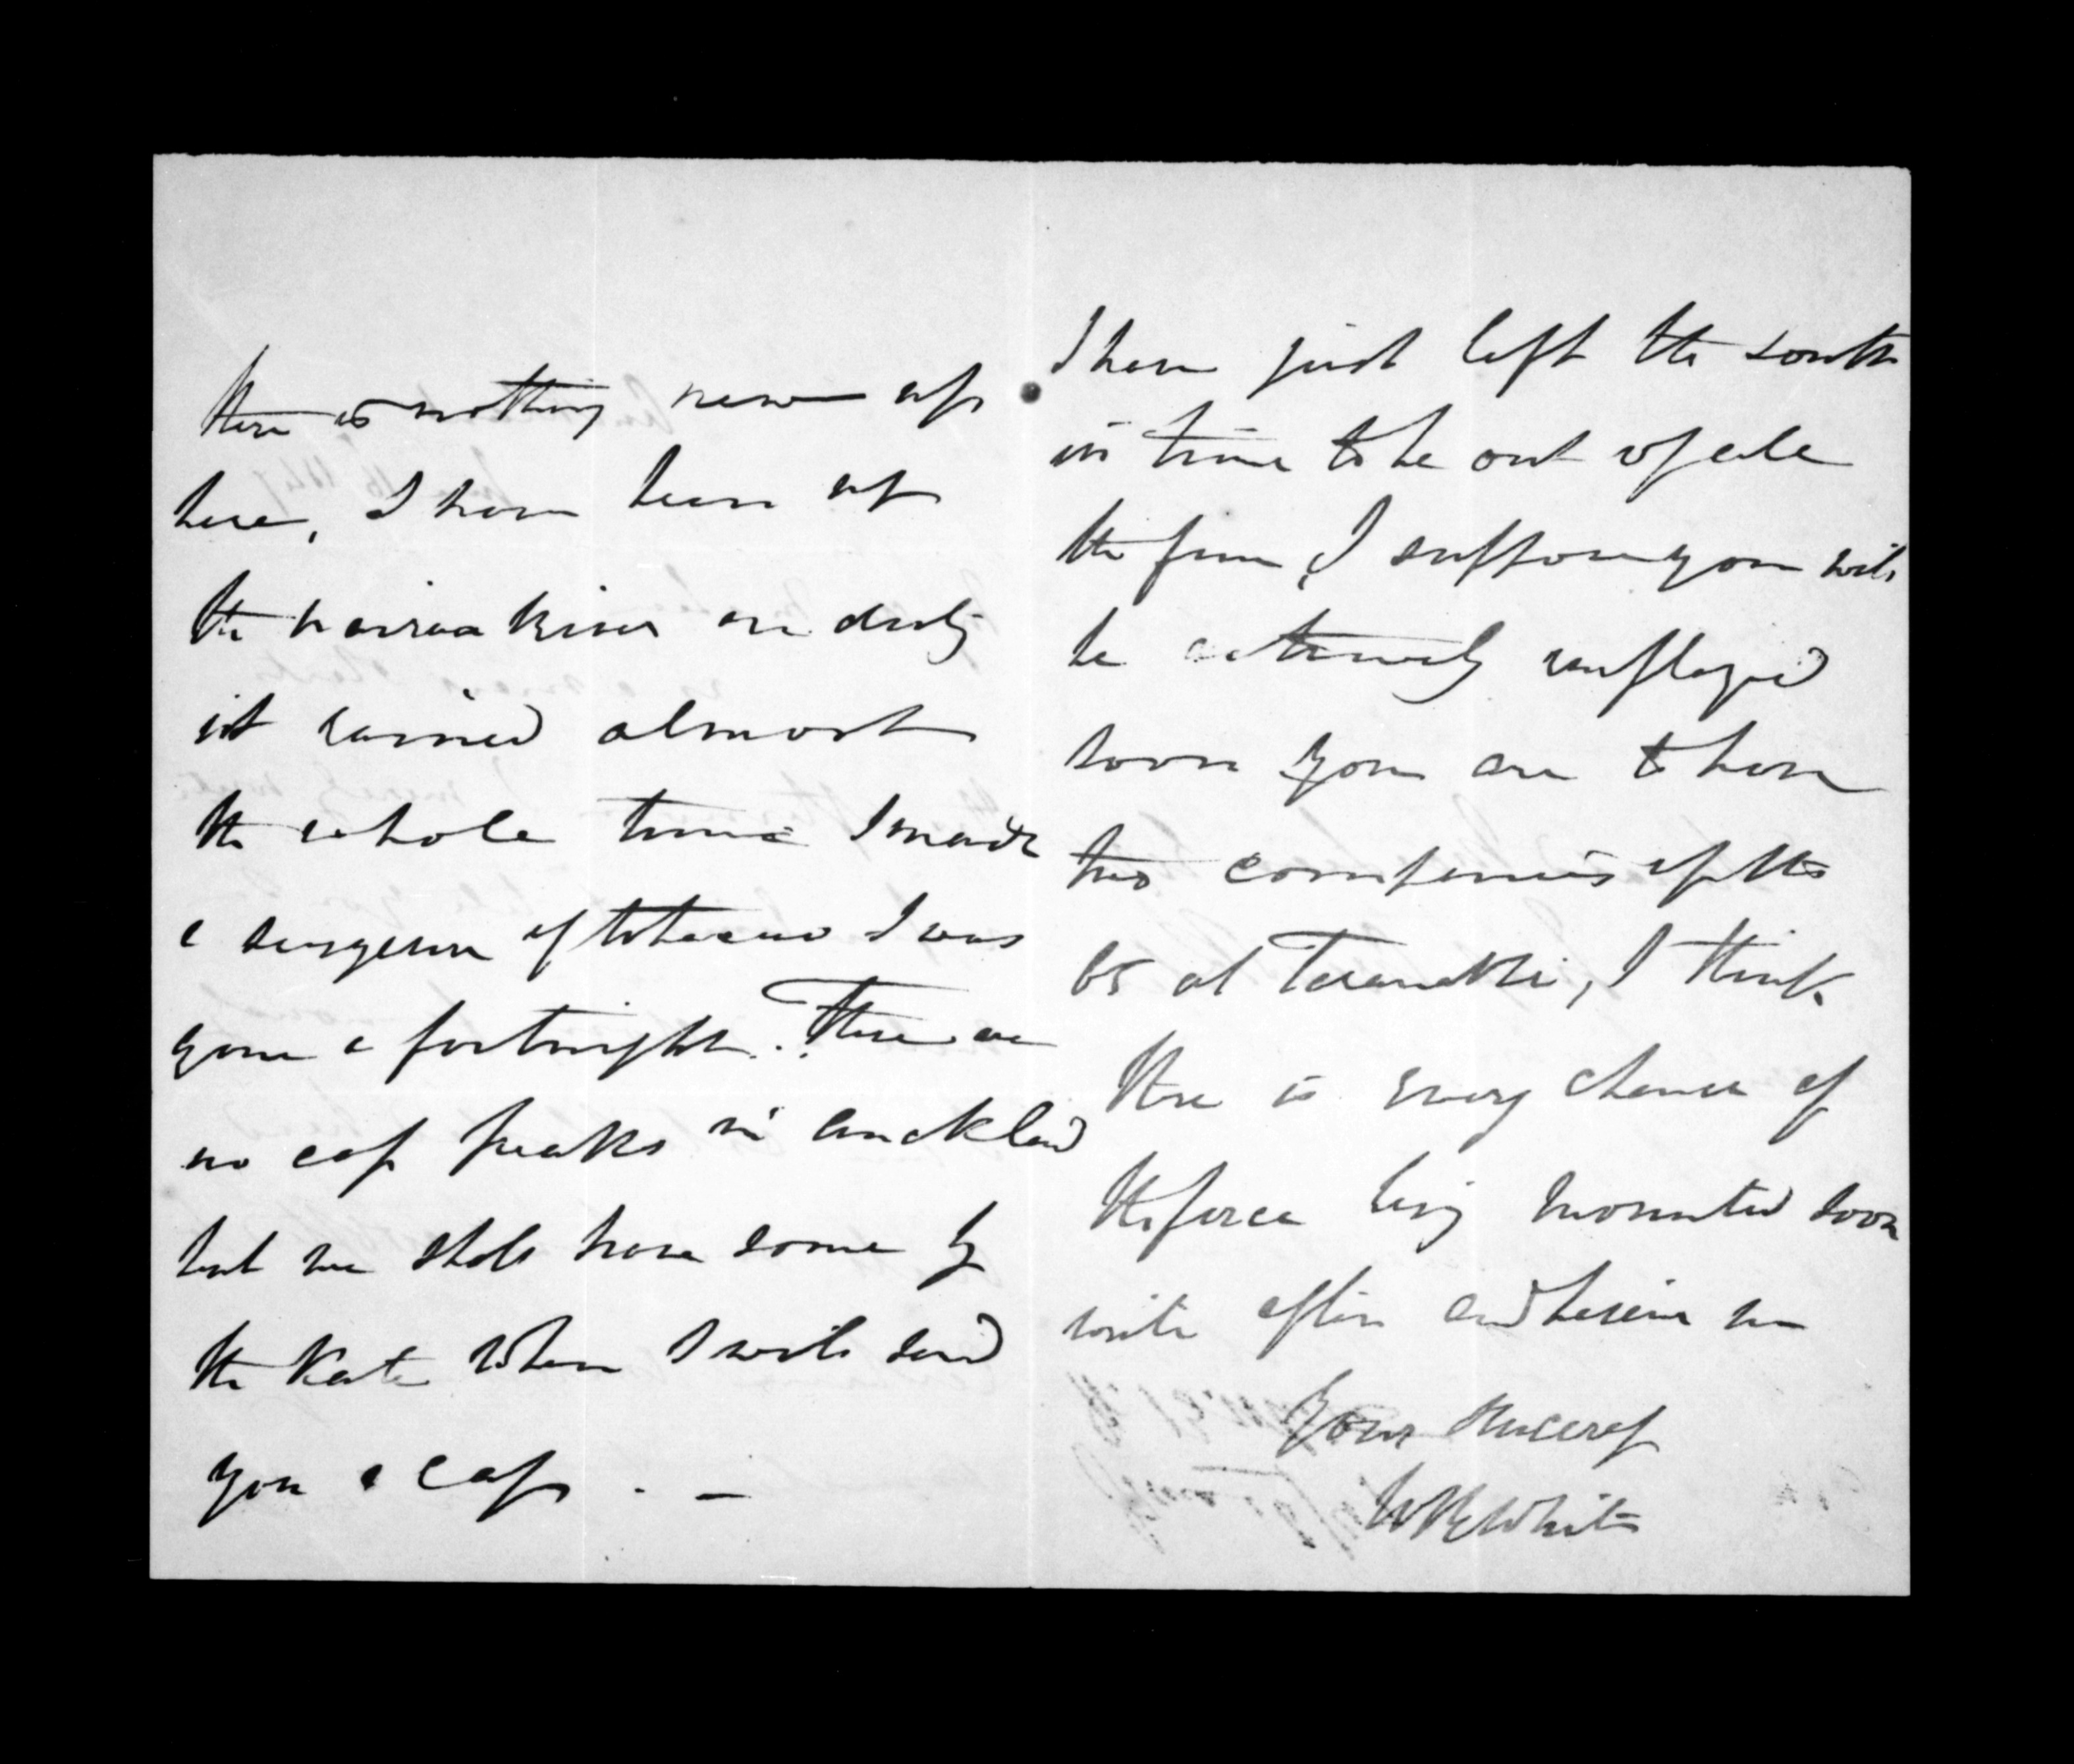 there is nothing new up
here, I have been up
the wairoa River on duty
it rained almost
the whole time I made
a seizure of tobacco I was
gone a fortnight. There are
no cap peaks in Auckland
but we shall have some by
the Kate when I will send
you a cap . _
I have just left the south
in time to be out of all
the fun, I suppose you will
be actively employed
soon you are to have
two companies of the
65 at Taranaki, I think
there is every chance of
the force being mounted soon
write often and believe me
Yours sincerely
WBWhite